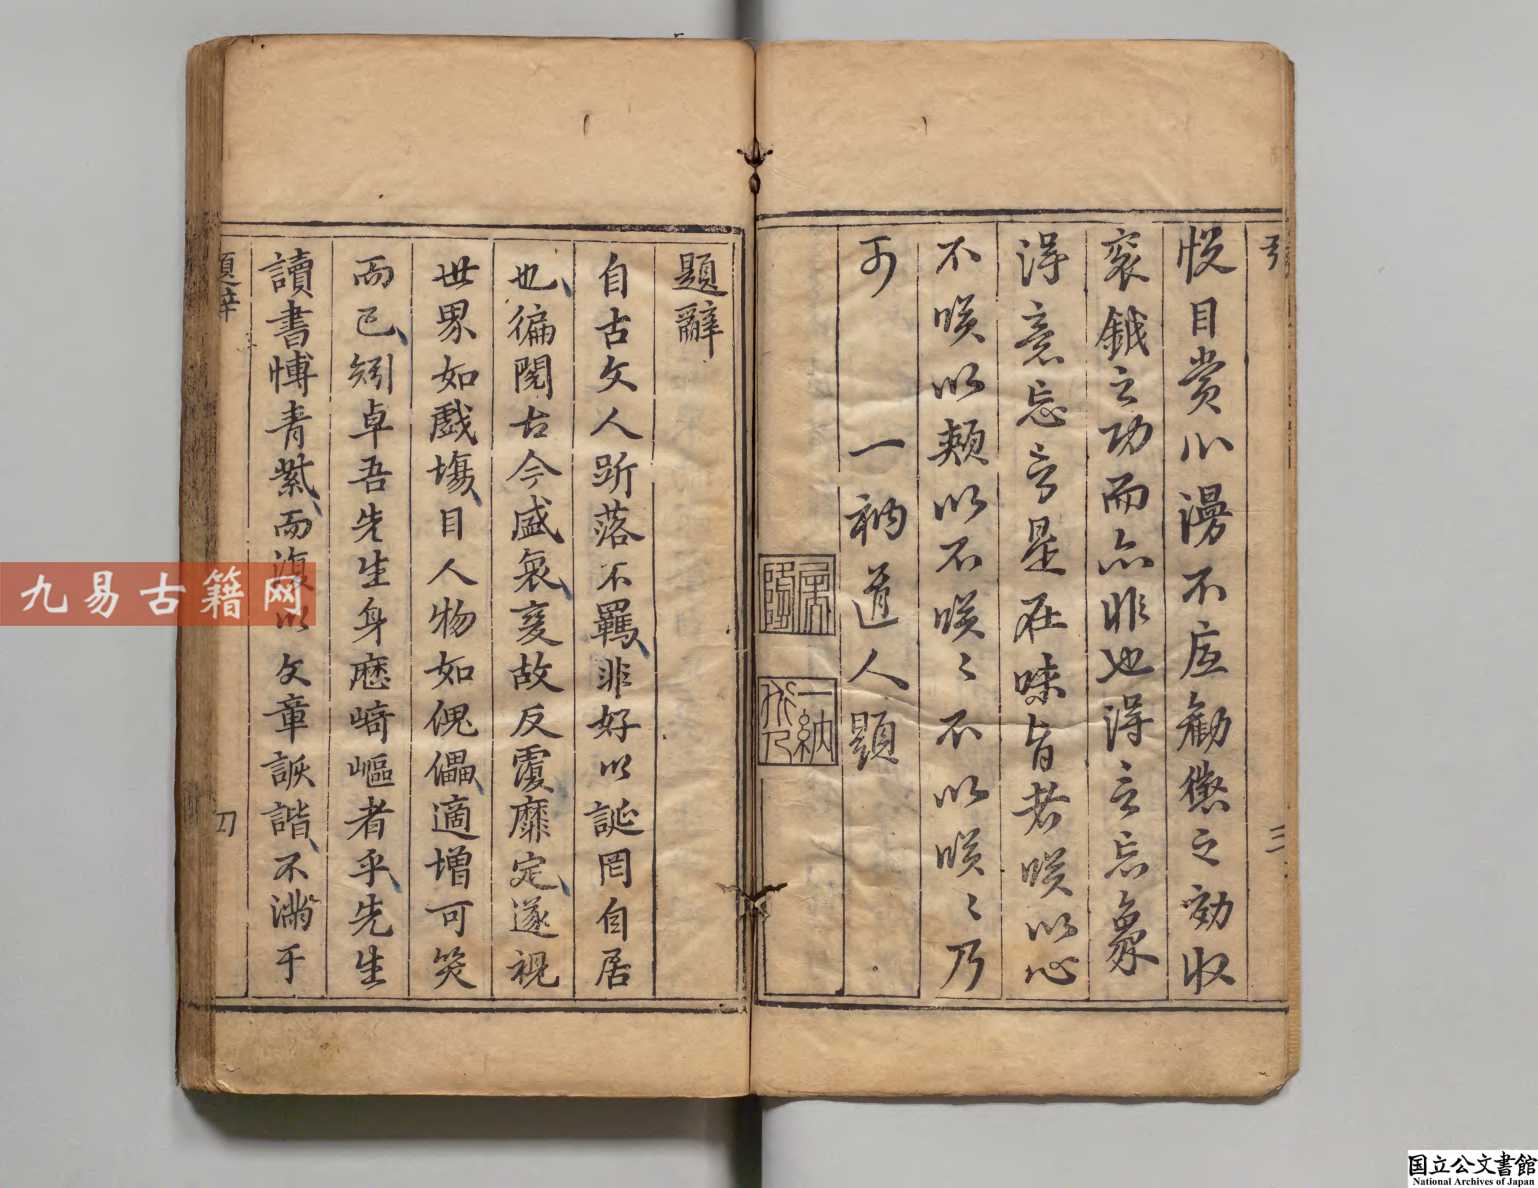 悅目賞心漫不應勸懲之勸收
袞鉞之功而亦非也得言忘象
得意忘言是在味旨者㗛以心
不㗛以頰以不㗛㗛不以㗛㗛乃
可 一衲道人題
一衲
題辭
自古文人跅落不羈非好以誕罔自居
也徧閱古今盛衰變故反覆靡定遂視
世界如戲塲目人物如傀儡適增可笑
而已矧卓吾先生身歷崎嶇者乎先生
讀書博青紫而復以文章詼諧不滿于
題辭
四
三
九易古籍网
国立公文書館
National Archives of Japan